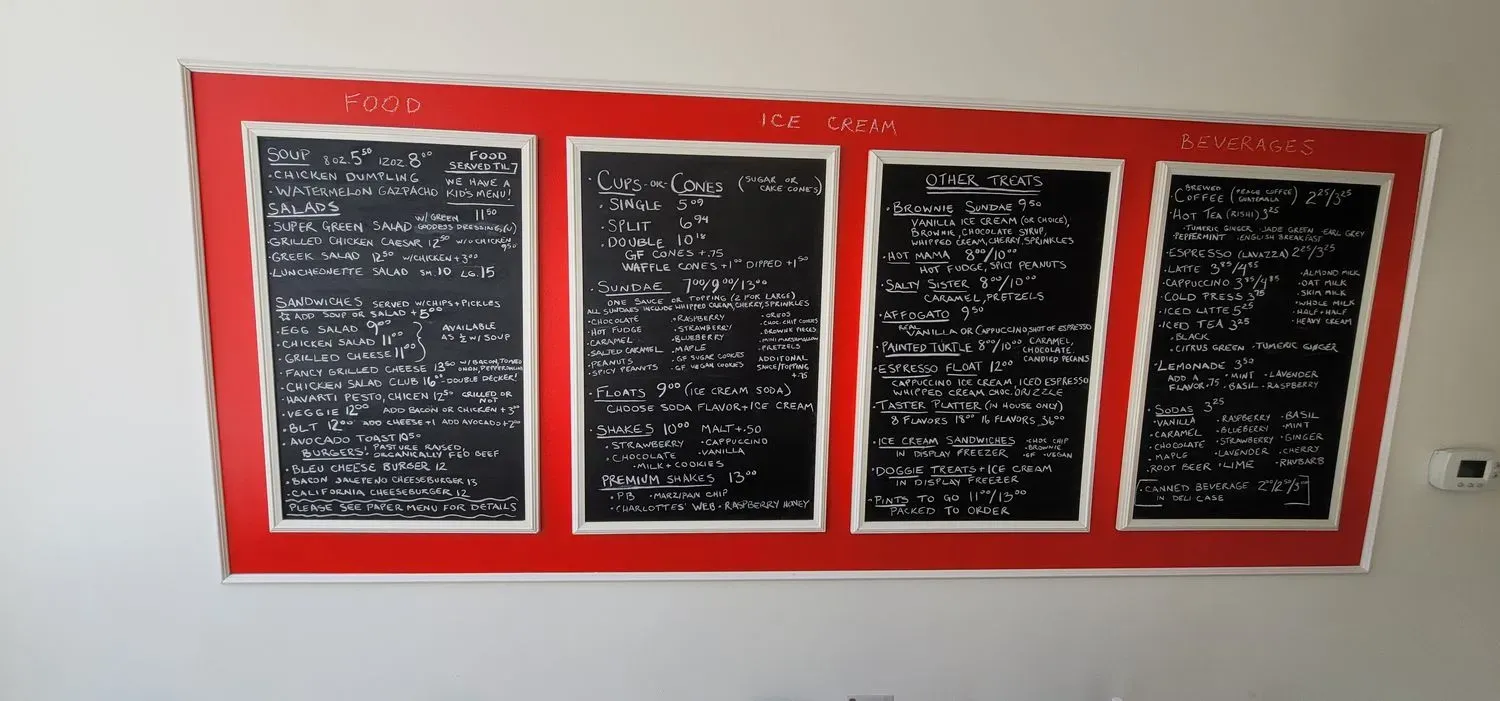 FOOD
ICE CREAM
BEVERAGES
SOUP 8 OZ. 5⁵⁰ 12 OZ. 8⁰⁰
FOOD
SERVED TIL 7
• CHICKEN DUMPLING
• WATERMELON GAZPACHO
WE HAVE A
KID'S MENU!
SALADS
SUPER GREEN SALAD W/ GREEN GODDESS DRESSING, (V) 11⁵⁰
GRILLED CHICKEN CAESAR 12⁵⁰ W/O CHICKEN 9⁵⁰
GREEK SALAD 12⁵⁰ W/CHICKEN +3⁰⁰
LUNCHEONETTE SALAD SM. 10 LG. 15
SANDWICHES SERVED W/CHIPS + PICKLES
☆ ADD SOUP OR SALAD +5⁰⁰
• EGG SALAD 9⁰⁰
• CHICKEN SALAD 11⁰⁰
• GRILLED CHEESE 11⁰⁰
AVAILABLE
AS ½ W/ SOUP
• FANCY GRILLED CHEESE 13⁵⁰ W/BACON, TOMATO, ONION,
• CHICKEN SALAD CLUB 16⁰⁰ - DOUBLE DECKER!
• HAVARTI PESTO, CHICKEN 12⁵⁰ GRILLED OR NOT
• VEGGIE 12⁰⁰ ADD BACON OR CHICKEN +3⁰⁰
• BLT 12⁰⁰ ADD CHEESE +1 ADD AVOCADO +2⁰⁰
• AVOCADO TOAST 10⁵⁰
BURGERS: PASTURE RAISED
ORGANICALLY FED BEEF
• BLEU CHEESE BURGER 12
• BACON JALEPENO CHEESEBURGER 13
• CALIFORNIA CHEESEBURGER 12
PLEASE SEE PAPER MENU FOR DETAILS
• CUPS -OR- CONES (SUGAR OR
CAKE CONES)
• SINGLE 5⁰⁹
• SPLIT 6⁹⁴
• DOUBLE 10¹⁸
GF CONES +.75
WAFFLE CONES +1⁰⁰ DIPPED +1⁵⁰
• SUNDAE 7⁰⁰/9⁰⁰/13⁰⁰
ONE SAUCE OR TOPPING (2 FOR LARGE)
ALL SUNDAES INCLUDE WHIPPED CREAM, CHERRY, SPRINKLES
• CHOCOLATE
• HOT FUDGE
• CARAMEL
• SALTED CARAMEL
• PEANUTS
• SPICY PEANUTS
• RASPBERRY
• STRAWBERRY
• BLUEBERRY
• MAPLE
• GF SUGAR COOKIES
• GF VEGAN COOKIES
• OREOS
• CHOC. CHIP COOKIES
• BROWNIE PIECES
• MINI MARSHMALLOW
• PRETZELS
ADDITIONAL
SAUCE/TOPPING
+.75
• FLOATS 9⁰⁰ (ICE CREAM SODA)
CHOOSE SODA FLAVOR + ICE CREAM
• SHAKES 10⁰⁰ MALT +.50
• STRAWBERRY • CAPPUCCINO
• CHOCOLATE • VANILLA
• MILK + COOKIES
PREMIUM SHAKES 13⁰⁰
• PB • MARZIPAN CHIP
• CHARLOTTES' WEB • RASPBERRY HONEY
OTHER TREATS
• BROWNIE SUNDAE 9⁵⁰
VANILLA ICE CREAM (OR CHOICE),
BROWNIE, CHOCOLATE SYRUP,
WHIPPED CREAM, CHERRY, SPRINKLES
• HOT MAMA 8⁰⁰/10⁰⁰
HOT FUDGE, SPICY PEANUTS
• SALTY SISTER 8⁰⁰/10⁰⁰
CARAMEL, PRETZELS
• AFFOGATO 9⁵⁰
REAL VANILLA OR CAPPUCCINO, SHOT OF ESPRESSO
• PAINTED TURTLE 8⁰⁰/10⁰⁰ CARAMEL,
CHOCOLATE
CANDIED PECANS
• ESPRESSO FLOAT 12⁰⁰
CAPPUCCINO ICE CREAM ICED ESPRESSO
WHIPPED CREAM CHOC. DRIZZLE
• TASTER PLATTER (IN HOUSE ONLY)
8 FLAVORS 18⁰⁰ 16 FLAVORS 36⁰⁰
• ICE CREAM SANDWICHES
IN DISPLAY FREEZER
• CHOC CHIP
• BROWNIE
• GF • VEGAN
• DOGGIE TREATS + ICE CREAM
IN DISPLAY FREEZER
• PINTS TO GO 11⁰⁰/13⁰⁰
PACKED TO ORDER
• BREWED
COFFEE (PEACE COFFEE GUATEMALA) 2²⁵/3²⁵
• HOT TEA (RISHI) 3²⁵
• TUMERIC GINGER • JADE GREEN • EARL GREY
• PEPPERMINT • ENGLISH BREAKFAST
• ESPRESSO (LAVAZZA) 2²⁵/3²⁵
• LATTE 3⁸⁵/4⁸⁵
• CAPPUCCINO 3⁸⁵/4⁸⁵
• COLD PRESS 3⁷⁵
• ICED LATTE 5²⁵
• ICED TEA 3²⁵
• ALMOND MILK
• OAT MILK
• SKIM MILK
• WHOLE MILK
• HALF + HALF
• HEAVY CREAM
• BLACK
• CITRUS GREEN • TUMERIC GINGER
• LEMONADE 3⁵⁰
ADD A
FLAVOR .75
• MINT • LAVENDER
• BASIL • RASPBERRY
• SODAS 3²⁵
• VANILLA
• CARAMEL
• CHOCOLATE
• MAPLE
• ROOT BEER
• RASPBERRY
• BLUEBERRY
• STRAWBERRY
• LAVENDER
• LIME
• BASIL
• MINT
• GINGER
• CHERRY
• RHUBARB
• CANNED BEVERAGE 2⁰⁰/2⁵⁰/3⁰⁰
IN DELI CASE